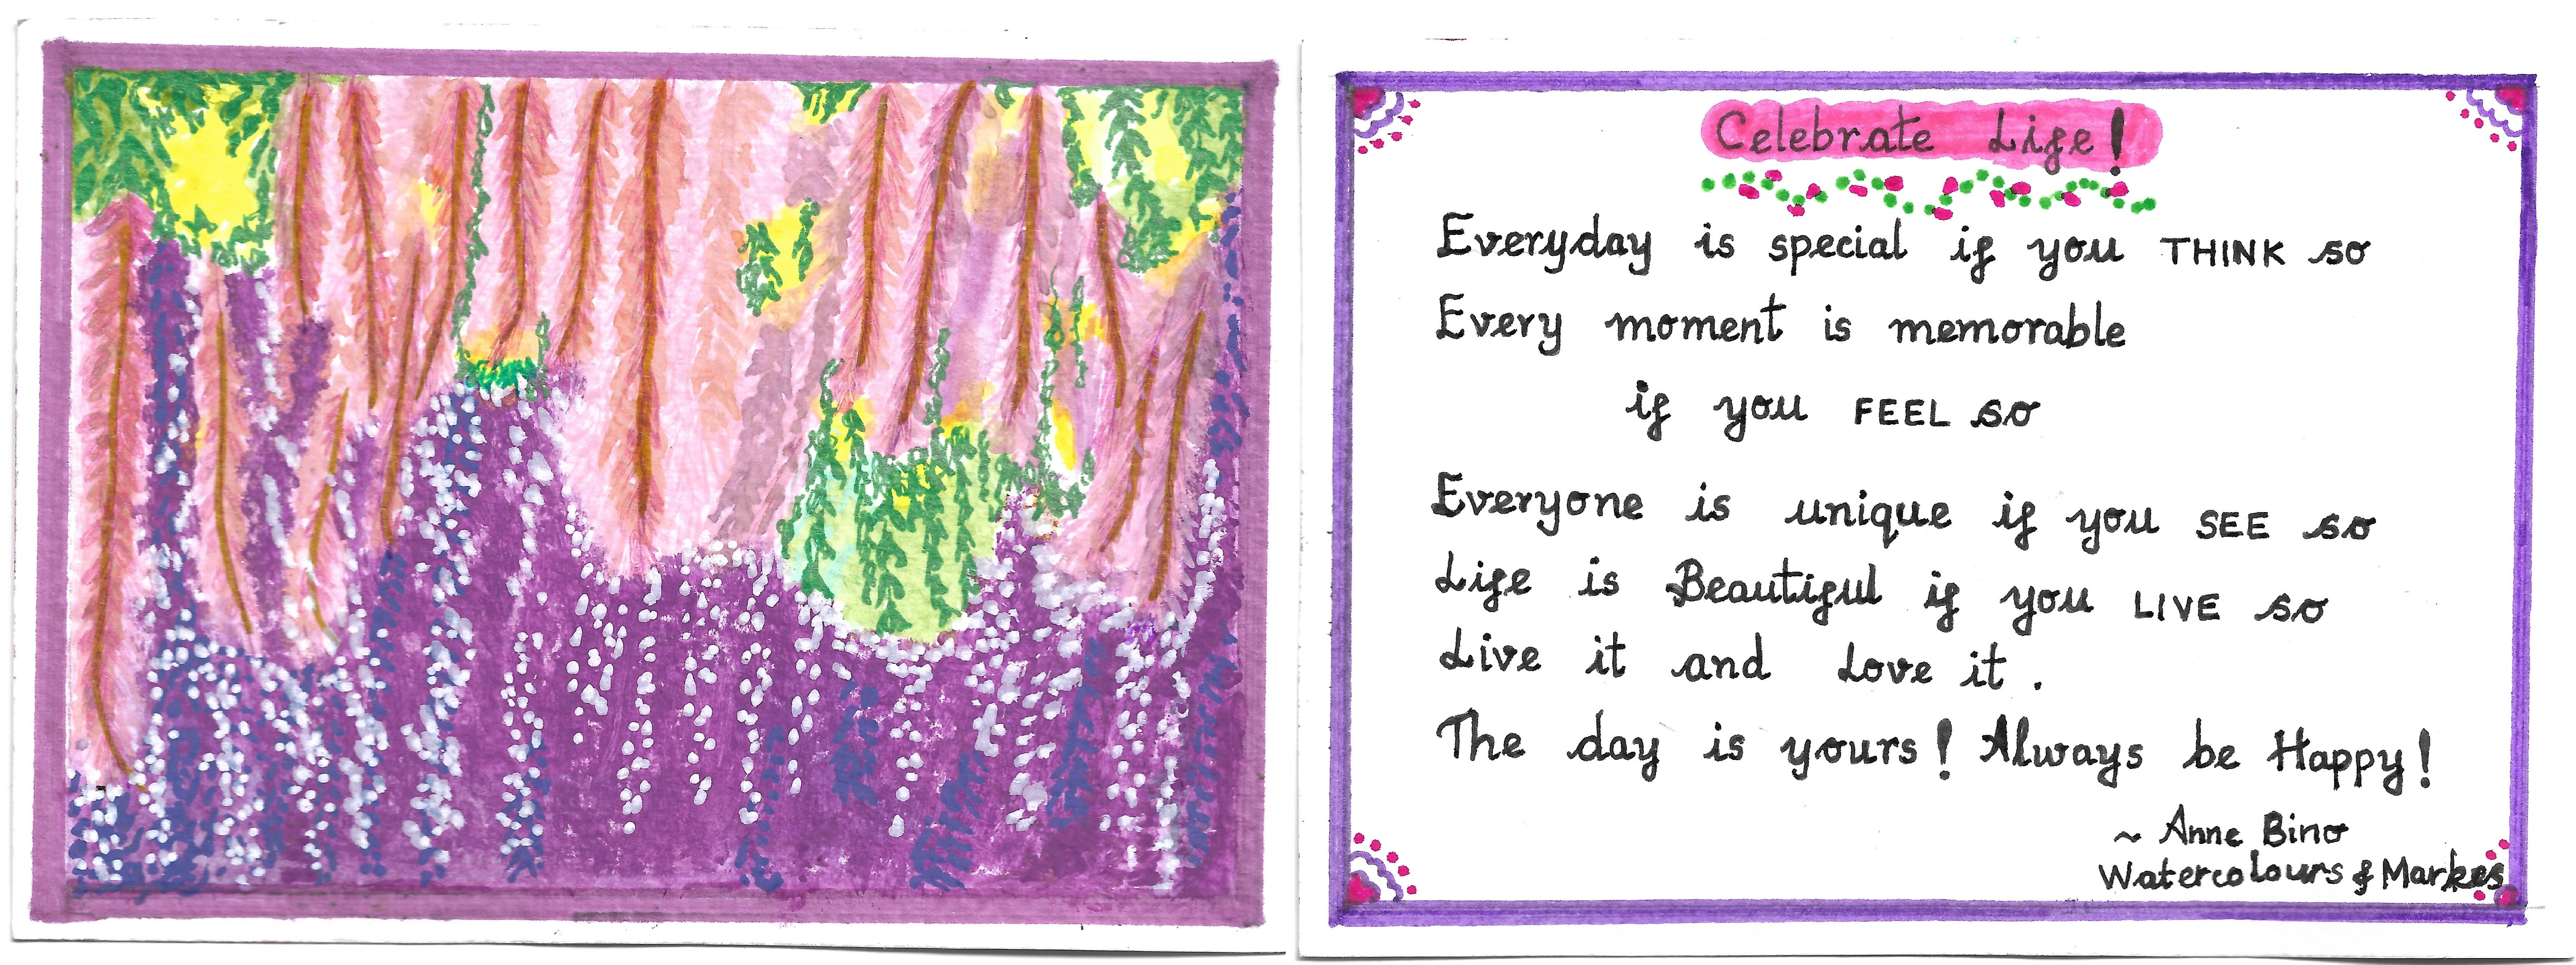 Celebrate Life!
Everyday is special if you THINK so
Every moment is memorable
if you FEEL so
Everyone is unique if you SEE so
Life is Beautiful if you LIVE so
Live it and Love it.
The day is yours! Always be Happy!
~ Anne Bino
Watercolours & Markes